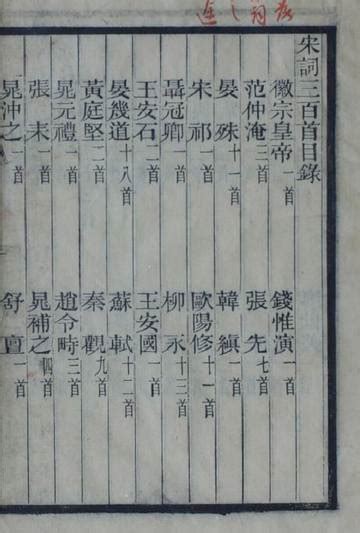 宋詞三百首目錄
徽宗皇帝一首 錢惟演一首
范仲淹三首 張先七首
晏殊十一首 韓縝一首
宋祁一首 歐陽修十一首
聶冠卿一首 柳永十三首
王安石二首 王安國一首
晏幾道十八首 蘇軾十二首
黃庭堅二首 秦觀九首
晁元禮一首 趙令畤三首
張耒一首 晁補之四首
晁沖之一首 舒亶一首